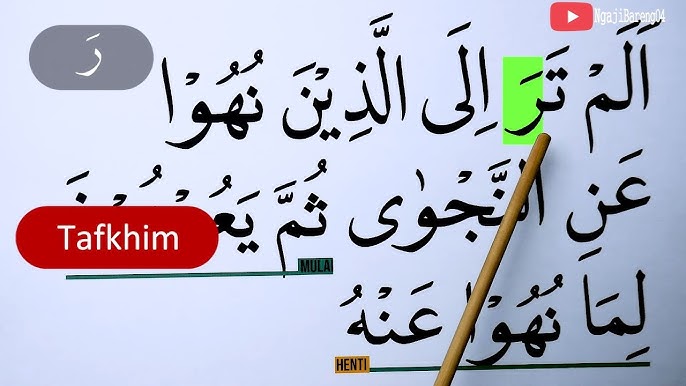 NgajiBareng04
رَ
اَلَمْ تَرَ اِلَى الَّذِيْنَ نُهُوْا
عَنِ النَّجْوٰى ثُمَّ
Tafkhim
MULAI
لِمَا نُهُوْا عَنْهُ
HENTI